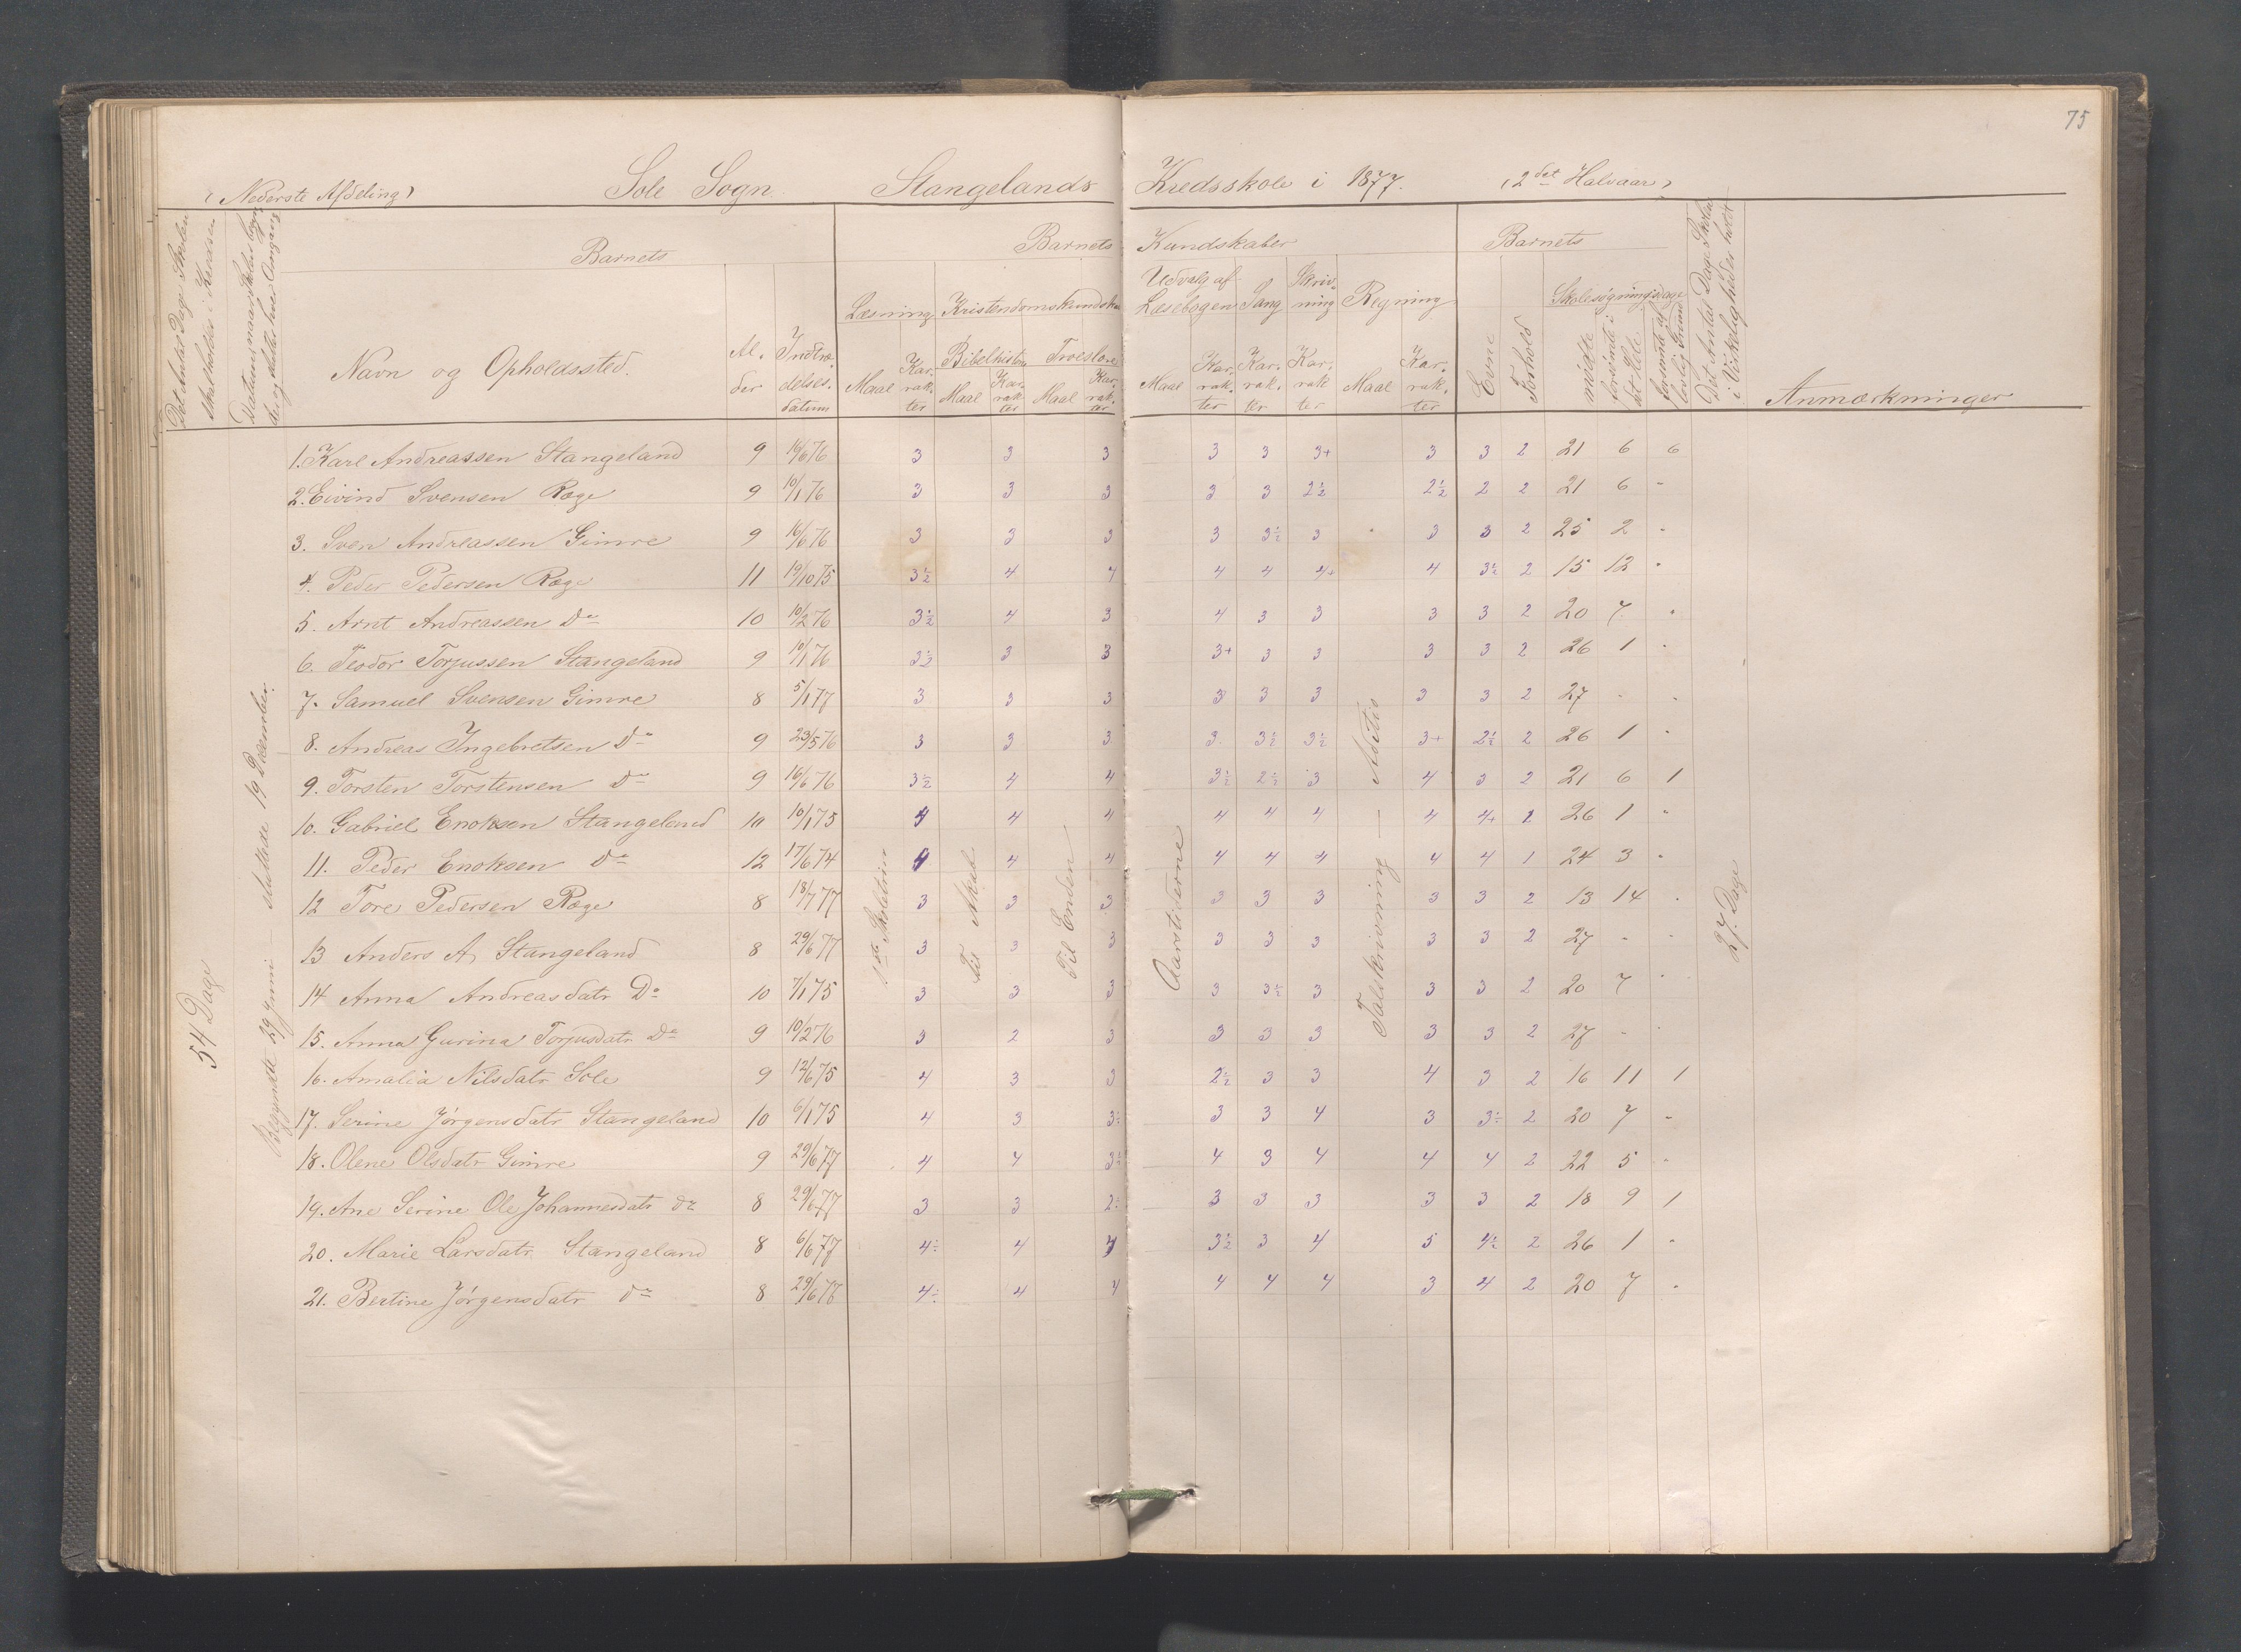 75
(Nederste Afdeling) Sole Sogn. Stangelands Kredsskole i 1877. (2det Halvaar)
Det Antal Dage Skolen skal holdes i Kredsen
Datum, naar Skolen begyndte og sluttede hver Omgang
Barnets
Navn og Opholdssted.
Al-der
Indtrædelses-datum
Barnets Kundskaber
Læsning
Maal
Karrakter
Kristendomskundskab
Bibelhistorie
Maal
Karrakter
Troeslære
Maal
Karrakter
Udvalg af Læsebogen
Maal
Karrakter
Sang
Karrakter
Skrivning
Karrakter
Regning
Maal
Karrakter
Barnets
Evne
Forhold
Skolesøgningsdage
mødte
forsømte i det Hele
forsømte af lovlig Grund
Det Antal Dage Skolen i Virkelighed er holdt
Anmærkninger
54 Dage
Begyndte 29 Juni — sluttede 19 December.
1ste Skoletrin
Til Skab
Til Enden
Aarstiderne
Talskrivning —
27 Dage
1. Karl Andreassen Stangeland 9 16/6 76 3 3 3 3 3 3+ 3 3 2 21 6 6
2. Eivind Svensen Røge 9 10/1 76 3 3 3 3 3 2½ 2½ 2 2 21 6 -
3. Sven Andreassen Gimre 9 16/6 76 3 3 3 3 3½ 3 3 3 2 25 2 -
4. Peder Pedersen Røge 11 19/10 75 3½ 4 4 4 4 4+ 4 3½ 2 15 12 -
5. Arnt Andreassen Do 10 10/2 76 3½ 4 3 4 3 3 3 3 2 20 7 -
6. Teodor Torjussen Stangeland 9 10/1 76 3½ 3 3 3+ 3 3 3 3 2 26 1 -
7. Samuel Svensen Gimre 8 5/1 77 3 3 3 3 3 3 3 3 2 27 - -
8. Andreas Ingebretsen Do 9 23/5 76 3 3 3 3 3½ 3½ 3+ 2½ 2 26 1 -
9. Torsten Torstensen Do 9 16/6 76 3½ 4 4 3½ 2½ 3 4 3 2 21 6 1
10. Gabriel Enoksen Stangeland 10 10/1 75 4 4 4 4 4 4 4 4+ 2 26 1 -
11. Peder Enoksen do 12 17/6 74 4 4 4 4 4 4 4 4 1 24 3 -
12 Tore Pedersen Røge 8 18/7 77 3 3 3 3 3 3 3 3 2 13 14 -
13 Anders A. Stangeland 8 29/6 77 3 3 3 3 3 3 3 3 2 27 - -
14 Anna Andreasdatr Do 10 7/1 75 3 3 3 3 3½ 3 3 3 2 20 7 -
15. Anna Gurina Torjusdatr Do 9 10/2 76 3 2 3 3 3 3 3 3 2 27 - -
16. Amalia Nilsdatr Sole 9 12/6 75 4 3 3 2½ 3 3 4 3 2 16 11 1
17. Serine Jørgensdatr Stangeland 10 6/1 75 4 3 3÷ 3 3 4 3 3÷ 2 20 7 -
18. Olene Olsdatr Gimre 9 29/6 77 4 4 3½ 4 3 4 4 4 2 22 5 -
19. Ane Serine Ole Johannesdatr do 8 29/6 77 3 3 2÷ 3 3 3 3 3 2 18 9 1
20. Marie Larsdatr Stangeland 8 6/6 77 4÷ 4 4 3½ 3 4 5 4½ 2 26 1 -
21. Bertine Jørgensdatr do 8 29/6 77 4÷ 4 4 4 4 4 3 4 2 20 7 -